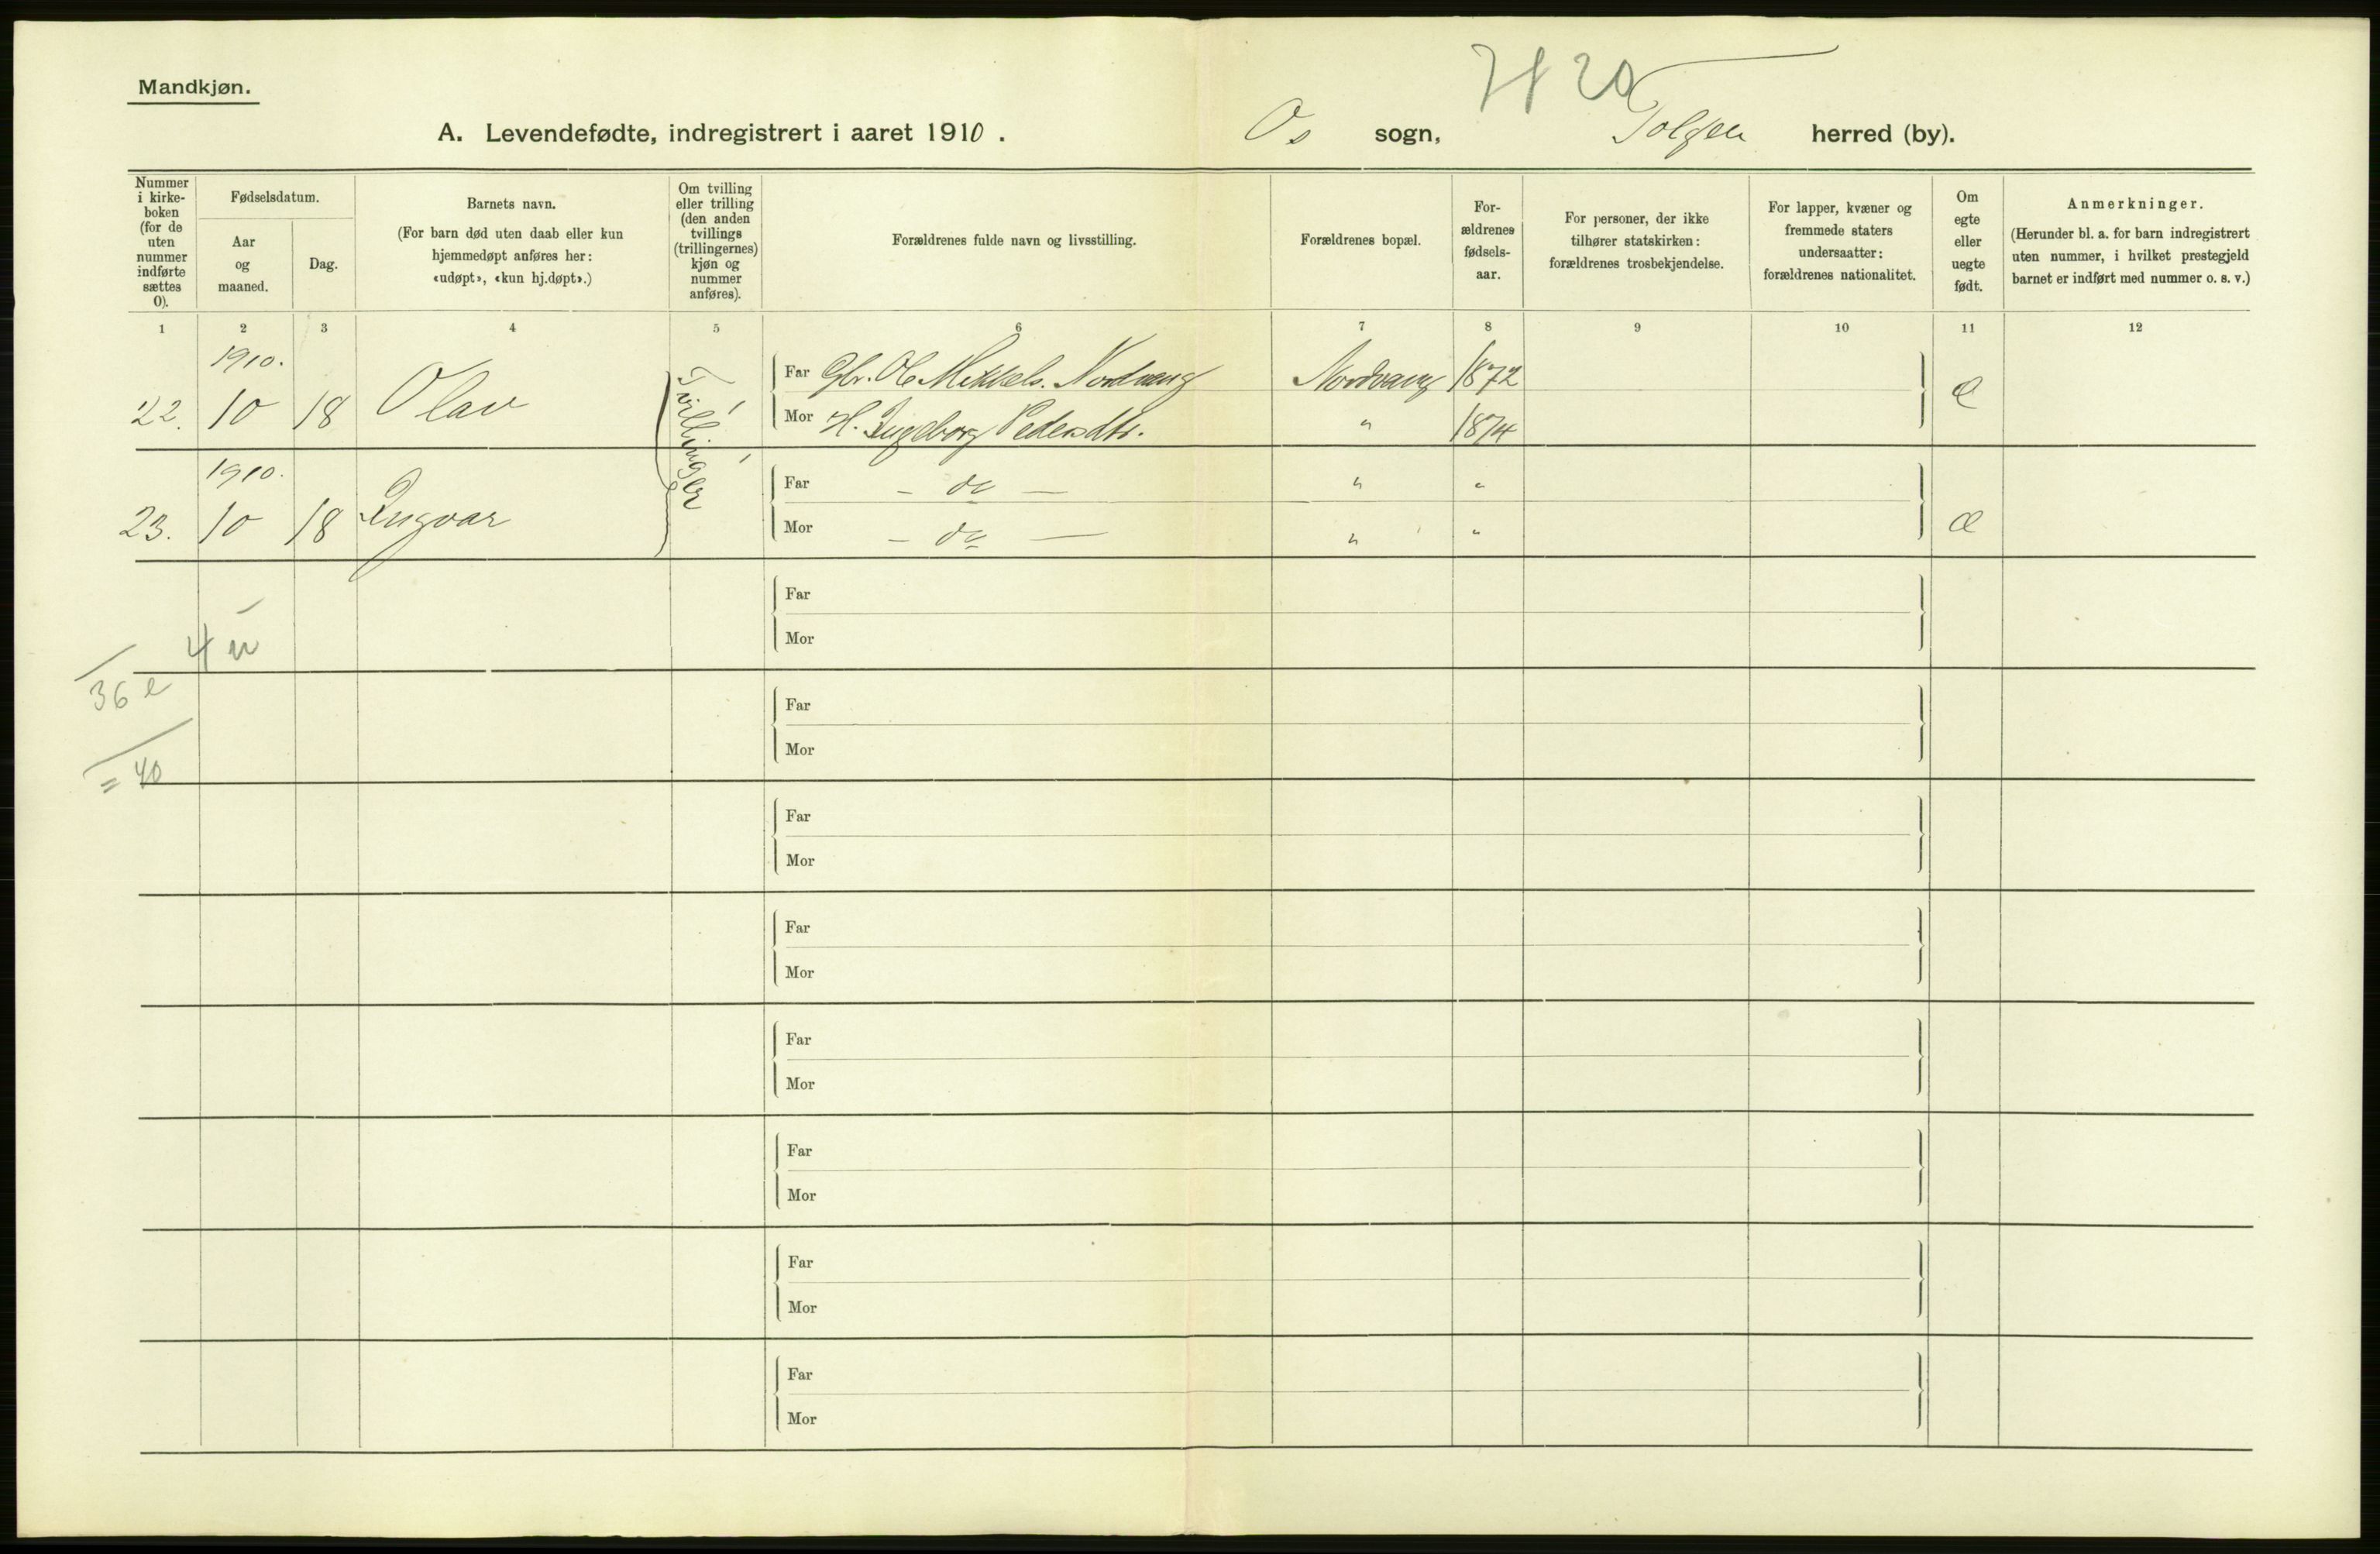 Mandkjøn.
H 20
A. Levendefødte, indregistrert i aaret 1910. Os sogn, Tolgen herred (by).
Nummer i kirke-boken (for de uten nummer indførte sættes 0).
Fødselsdatum.
Aar og maaned.
Dag.
Barnets navn.
(For barn død uten daab eller kun hjemmedøpt anføres her: «udøpt», «kun hj.døpt».)
Om tvilling eller trilling (den anden tvillings (trillingernes) kjøn og nummer anføres).
Forældrenes fulde navn og livsstilling.
Forældrenes bopæl.
For-ældrenes fødsels-aar.
For personer, der ikke tilhører statskirken: forældrenes trosbekjendelse.
For lapper, kvæner og fremmede staters undersaatter: forældrenes nationalitet.
Om egte eller uegte født.
Anmerkninger.
(Herunder bl. a. for barn indregistrert uten nummer, i hvilket prestegjeld barnet er indført med nummer o. s. v.)
1 2 3 4 5 6 7 8 9 10 11 12
1910.
22. 10 18 Olav Tvillinger Far Gbr. Ole Mikkels. Nordvang Nordvang 1872 e
Mor H. Ingeborg Pedersdtr. " 1874
1910.
23. 10 18 Ingvar Far - do - " "
Mor - do - " " e
Far
4 u Mor
36 e
Far
Mor
= 40
Far
Mor
Far
Mor
Far
Mor
Far
Mor
Far
Mor
Far
Mor